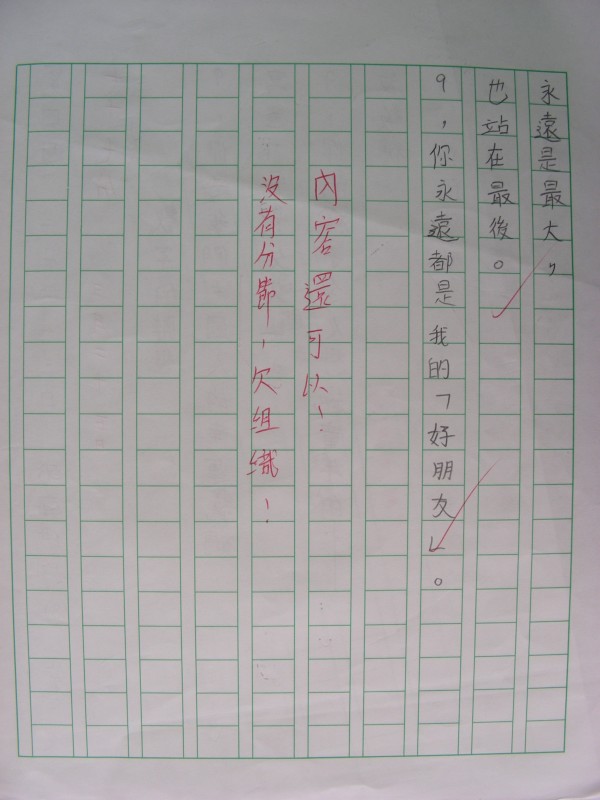 永遠是最大，
也站在最後。
9，你永遠都是我的「好朋友」。
內容還可以！
沒有分節，欠組織！